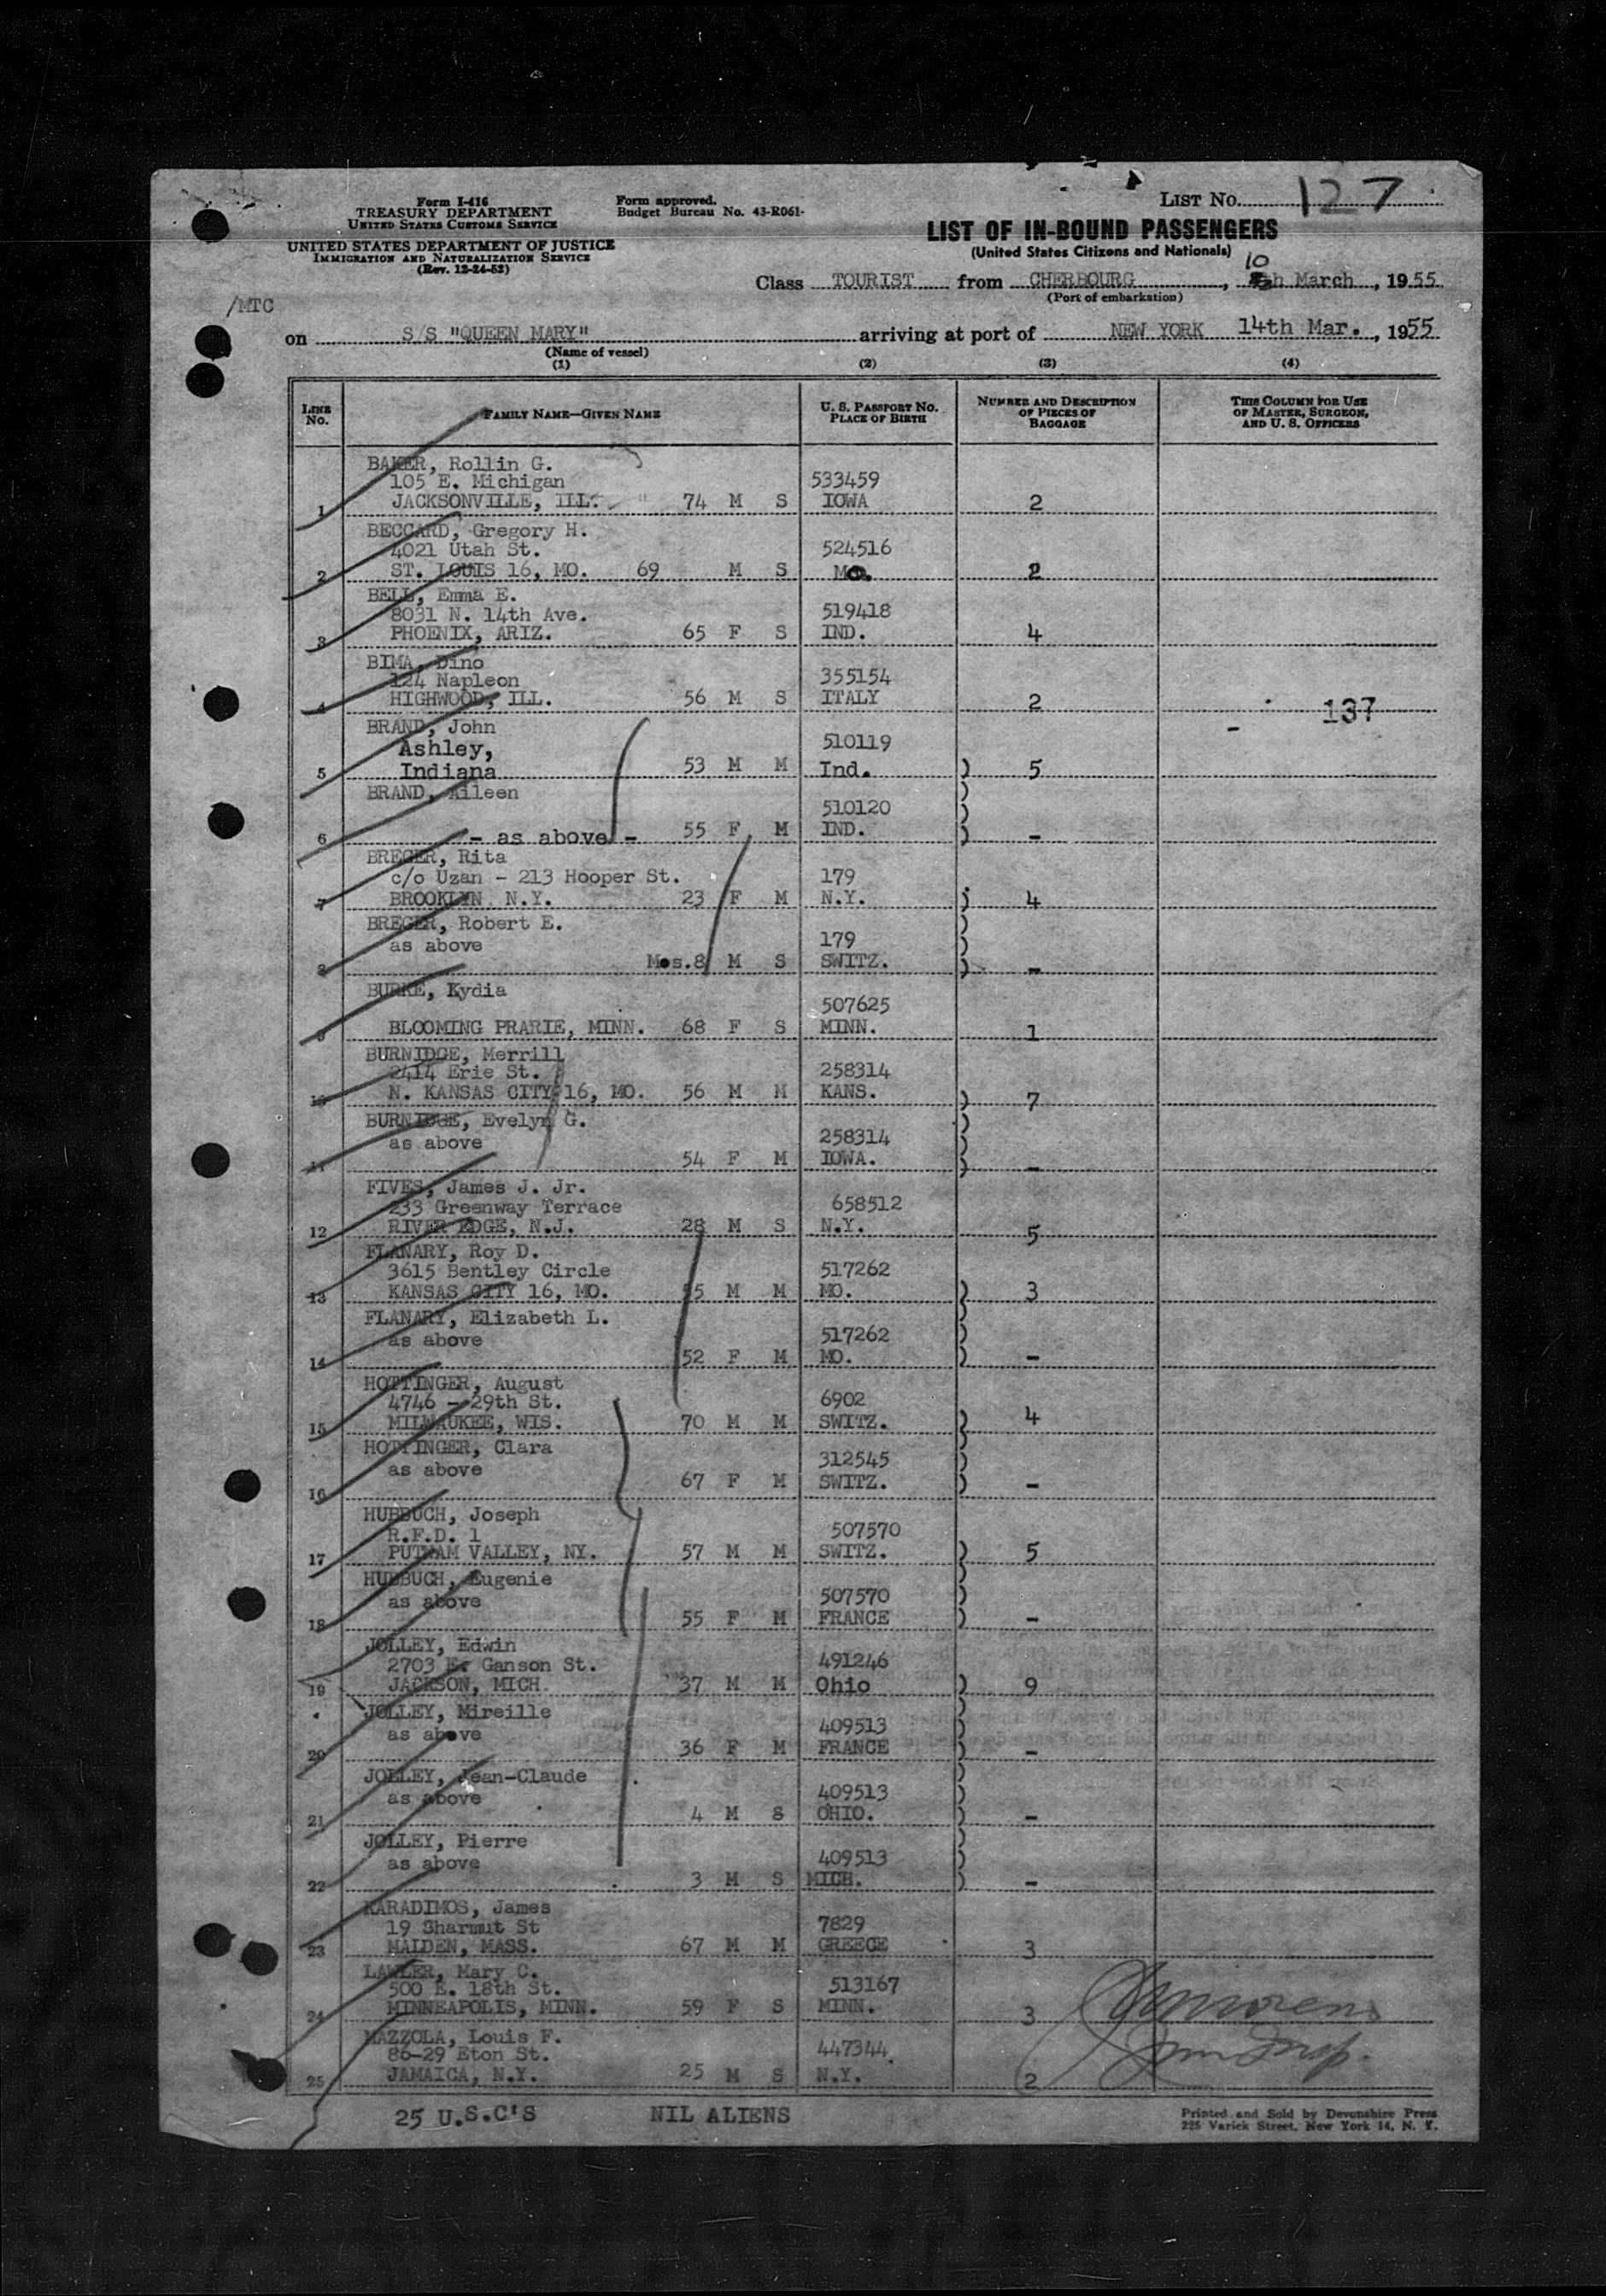 Form I-416
TREASURY DEPARTMENT
UNITED STATES CUSTOMS SERVICE
UNITED STATES DEPARTMENT OF JUSTICE
IMMIGRATION AND NATURALIZATION SERVICE
(Rev. 12-24-52)
Form approved.
Budget Bureau No. 43-R061-
LIST NO. 127
LIST OF IN-BOUND PASSENGERS
(United States Citizens and Nationals)
Class TOURIST from CHERBOURG, 10 th March, 1955
(Port of embarkation)
/MTC
on S/S "QUEEN MARY" arriving at port of NEW YORK 14th Mar., 1955
(Name of vessel)
(1) (2) (3) (4)
LINE NO. FAMILY NAME—GIVEN NAME U. S. PASSPORT NO. PLACE OF BIRTH NUMBER AND DESCRIPTION OF PIECES OF BAGGAGE THIS COLUMN FOR USE OF MASTER, SURGEON, AND U. S. OFFICERS
BAKER, Rollin G.
105 E. Michigan 533459
1 JACKSONVILLE, ILL. " 74 M S IOWA 2
BECCARD, Gregory H.
4021 Utah St. 524516
2 ST. LOUIS 16, MO. 69 M S Mo. 2
BELL, Emma E.
8031 N. 14th Ave. 519418
3 PHOENIX, ARIZ. 65 F S IND. 4
BIMA, Dino
124 Napleon 355154
4 HIGHWOOD, ILL. 56 M S ITALY 2 - 137
BRAND, John
Ashley, 510119
5 Indiana 53 M M Ind. ) 5
BRAND, Aileen
510120
6 - as above - 55 F M IND. ) -
BREGER, Rita
c/o Uzan - 213 Hooper St. 179
7 BROOKLYN N.Y. 23 F M N.Y. ) 4
BREGER, Robert E.
as above 179
8 Mos.8 M S SWITZ. ) -
BURKE, Kydia
507625
9 BLOOMING PRARIE, MINN. 68 F S MINN. 1
BURNIDGE, Merrill
2414 Erie St. 258314
10 N. KANSAS CITY 16, MO. 56 M M KANS. ) 7
BURNIDGE, Evelyn G.
as above 258314
11 54 F M IOWA. ) -
FIVES, James J. Jr.
233 Greenway Terrace 658512
12 RIVER EDGE, N.J. 28 M S N.Y. 5
FLANARY, Roy D.
3615 Bentley Circle 517262
13 KANSAS CITY 16, MO. 55 M M MO. ) 3
FLANARY, Elizabeth L.
as above 517262
14 52 F M MO. ) -
HOTTINGER, August
4746 - 29th St. 6902
15 MILWAUKEE, WIS. 70 M M SWITZ. ) 4
HOTTINGER, Clara
as above 312545
16 67 F M SWITZ. ) -
HUBBUCH, Joseph
R.F.D. 1 507570
17 PUTNAM VALLEY, NY. 57 M M SWITZ. ) 5
HUBBUCH, Eugenie
as above 507570
18 55 F M FRANCE ) -
JOLLEY, Edwin
2703 E. Ganson St. 491246
19 JACKSON, MICH. 37 M M Ohio ) 9
JOLLEY, Mireille
as above 409513
20 36 F M FRANCE ) -
JOLLEY, Jean-Claude
as above 409513
21 4 M S OHIO. ) -
JOLLEY, Pierre
as above 409513
22 3 M S MICH. ) -
KARADIMOS, James
19 Sharmut St 7829
23 MALDEN, MASS. 67 M M GREECE 3
LAWLER, Mary C.
500 E. 18th St. 513167
24 MINNEAPOLIS, MINN. 59 F S MINN. 3
MAZZOLA, Louis F.
86-29 Eton St. 447344
25 JAMAICA, N.Y. 25 M S N.Y. 2
25 U.S.C'S NIL ALIENS
Printed and Sold by Devonshire Press
225 Varick Street, New York 14, N. Y.